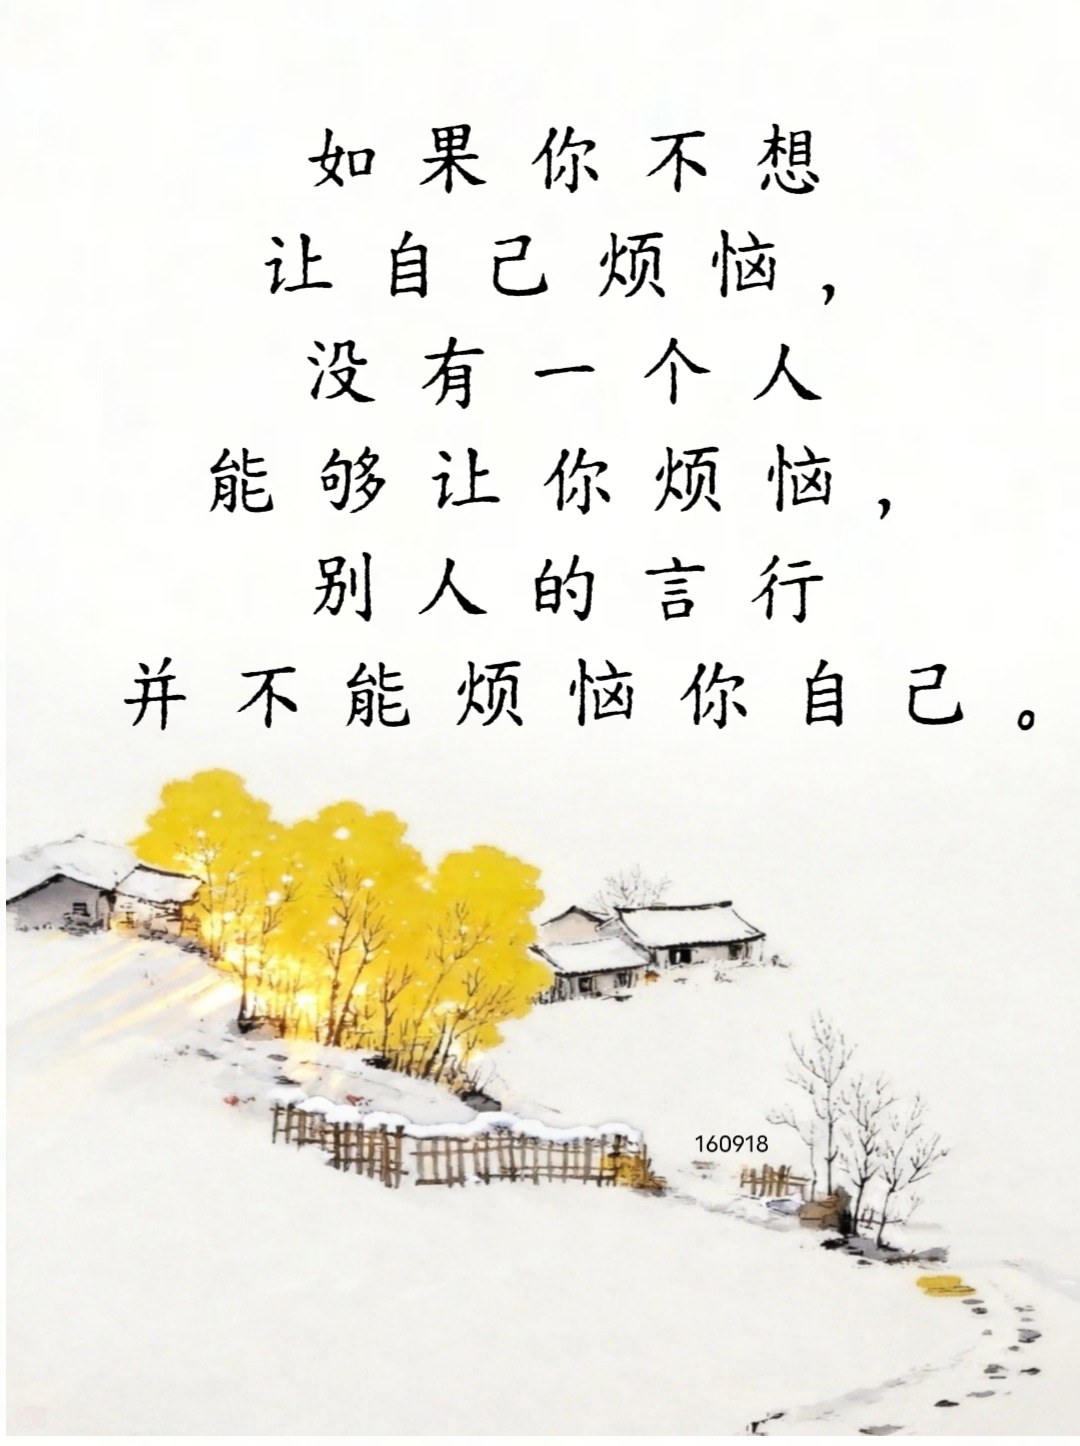 如果你不想
让自己烦恼,
没有一个人
能够让你烦恼,
别人的言行
并不能烦恼你自己。
160918